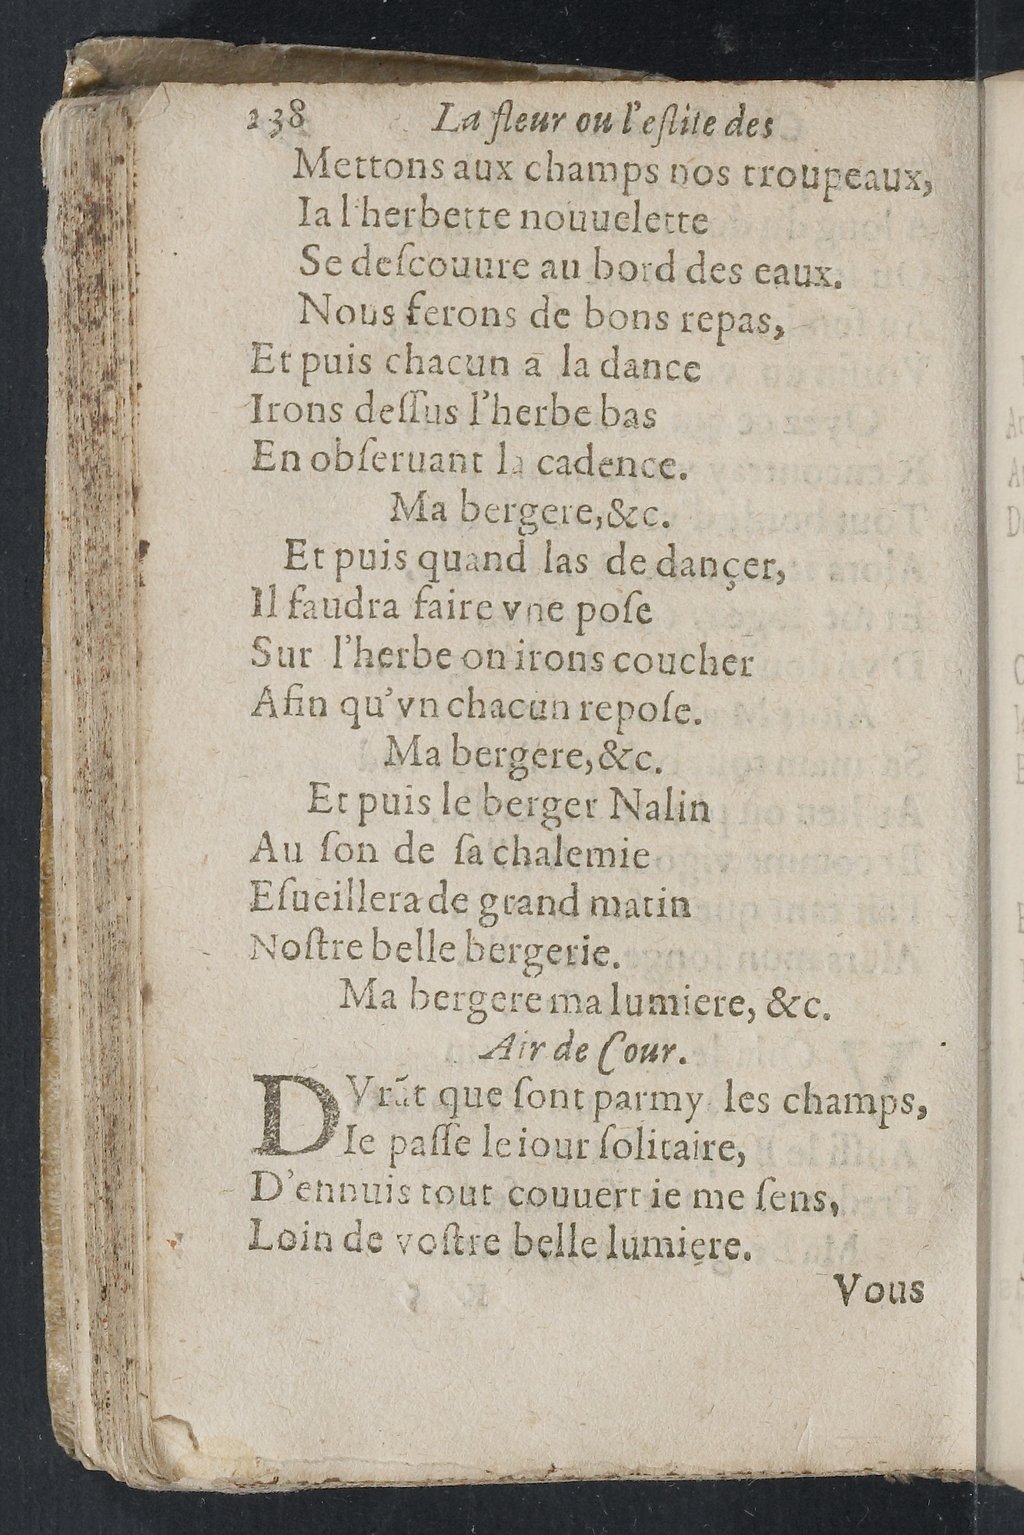 238 La fleur ou l'eſlite des
Mettons aux champs nos troupeaux,
Ia l'herbette nouuelette
Se deſcouure au bord des eaux.
Nous ferons de bons repas,
Et puis chacun a la dance
Irons deſſus l'herbe bas
En obſeruant la cadence.
Ma bergere, &c.
Et puis quand las de dançer,
Il faudra faire vne poſe
Sur l'herbe on irons coucher
Afin qu'vn chacun repoſe.
Ma bergere, &c.
Et puis le berger Nalin
Au ſon de ſa chalemie
Eſueillera de grand matin
Noſtre belle bergerie.
Ma bergere ma lumiere, &c.
Air de Cour.
DVrãt que ſont parmy les champs,
Ie paſſe le iour ſolitaire,
D'ennuis tout couuert ie me ſens,
Loin de voſtre belle lumiere.
Vous